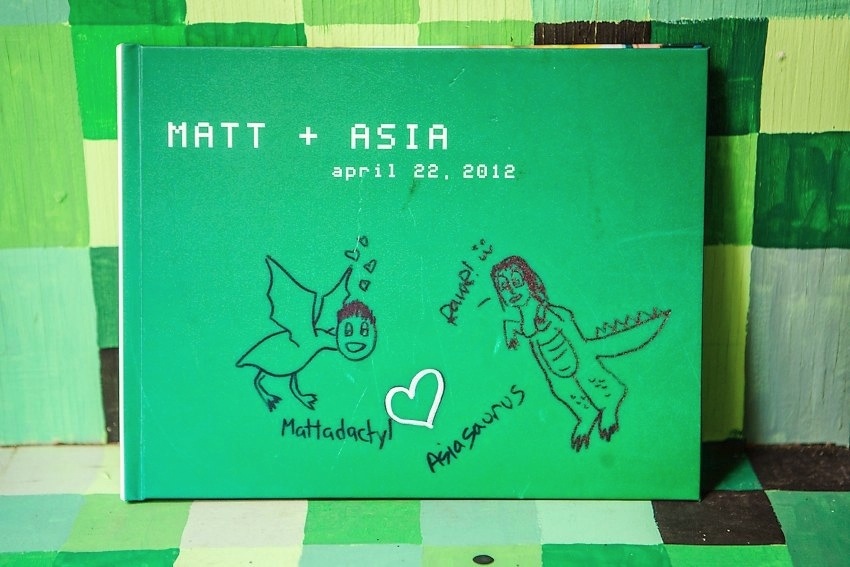 MATT + ASIA
april 22, 2012
Rawr! :)
Mattadactyl
Asiasaurus